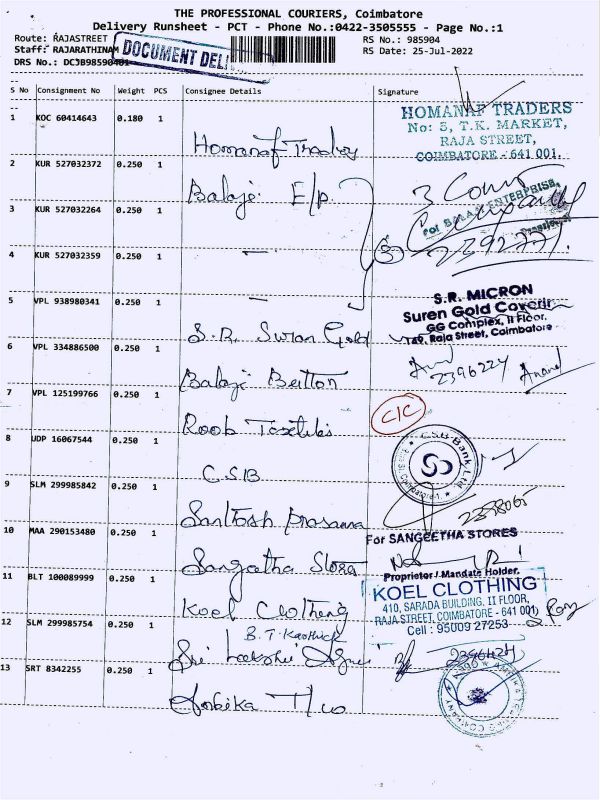 THE PROFESSIONAL COURIERS, Coimbatore
Delivery Runsheet - PCT - Phone No.:0422-3505555 - Page No.:1
Route: RAJASTREET
RS No.: 985904
Staff: RAJARATHINAM
RS Date: 25-Jul-2022
DOCUMENT DEL
DRS No.: DCJB98590401
S No Consignment No Weight PCS Consignee Details Signature
1 KOC 60414643 0.180 1
Homanaf Traders
HOMANAF TRADERS
No: 5, T.K. MARKET,
RAJA STREET,
COIMBATORE - 641 001.
2 KUR 527032372 0.250 1
Balaji E/P
3 Coun
For BALAJI ENTERPRISE,
3 KUR 527032264 0.250 1
4 KUR 527032359 0.250 1
3
5 VPL 938980341 0.250 1
S.R. Suran Gold
S.R. MICRON
Suren Gold Coverin
GG Complex, II Floor,
149, Raja Street, Coimbatore
6 VPL 334886500 0.250 1
Balaji Button
2396224 Anand
7 VPL 125199766 0.250 1
Roob Textiles
C/C
8 UDP 16067544 0.250 1
C.S.B
CSB Bank Ltd
Coimbatore-1
9 SLM 299985842 0.250 1
Santhosh Prasanna
10 MAA 290153480 0.250 1
Sangeetha Stores
For SANGEETHA STORES
Proprietor / Mandate Holder.
11 BLT 100089999 0.250 1
Koel Clothing
KOEL CLOTHING
410, SARADA BUILDING, II FLOOR,
RAJA STREET, COIMBATORE - 641 001
Cell : 95009 27253
12 SLM 299985754 0.250 1
B.T. Karthick
Sri Lakshmi
2396424
13 SRT 8342255 0.250 1
Ambika T/co